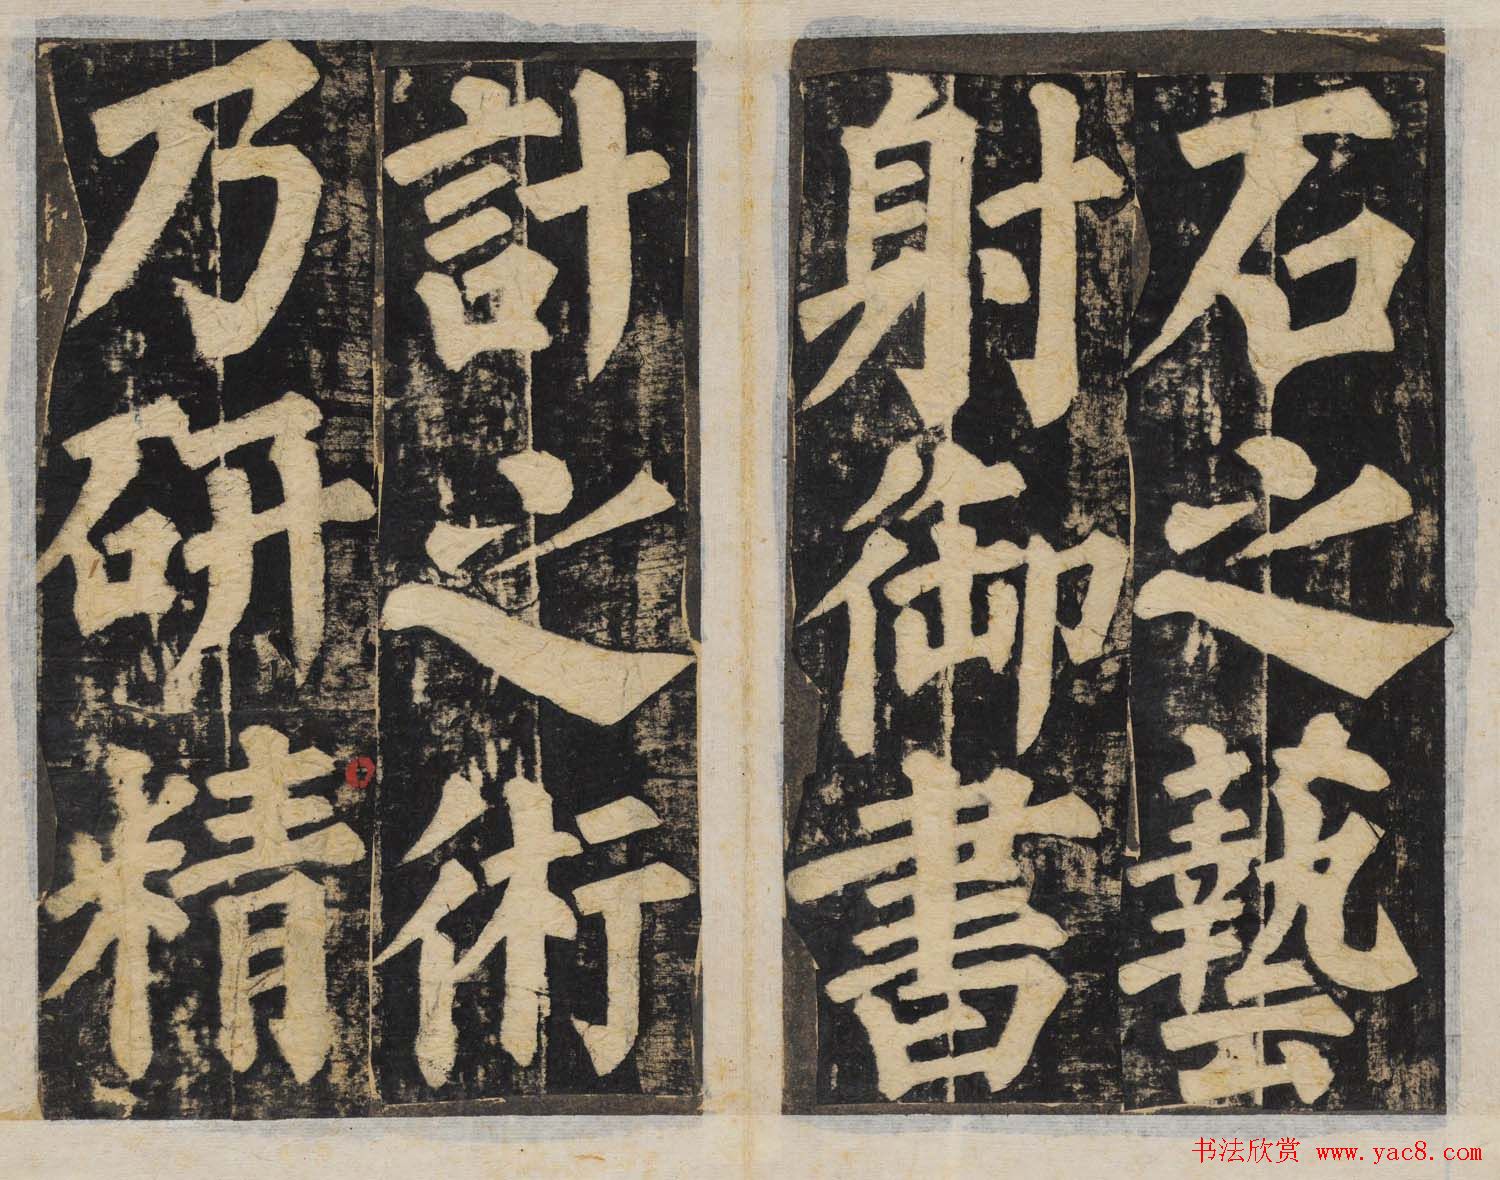 石之藝
射御書
計之術
乃研精
书法欣赏 www.yac8.com